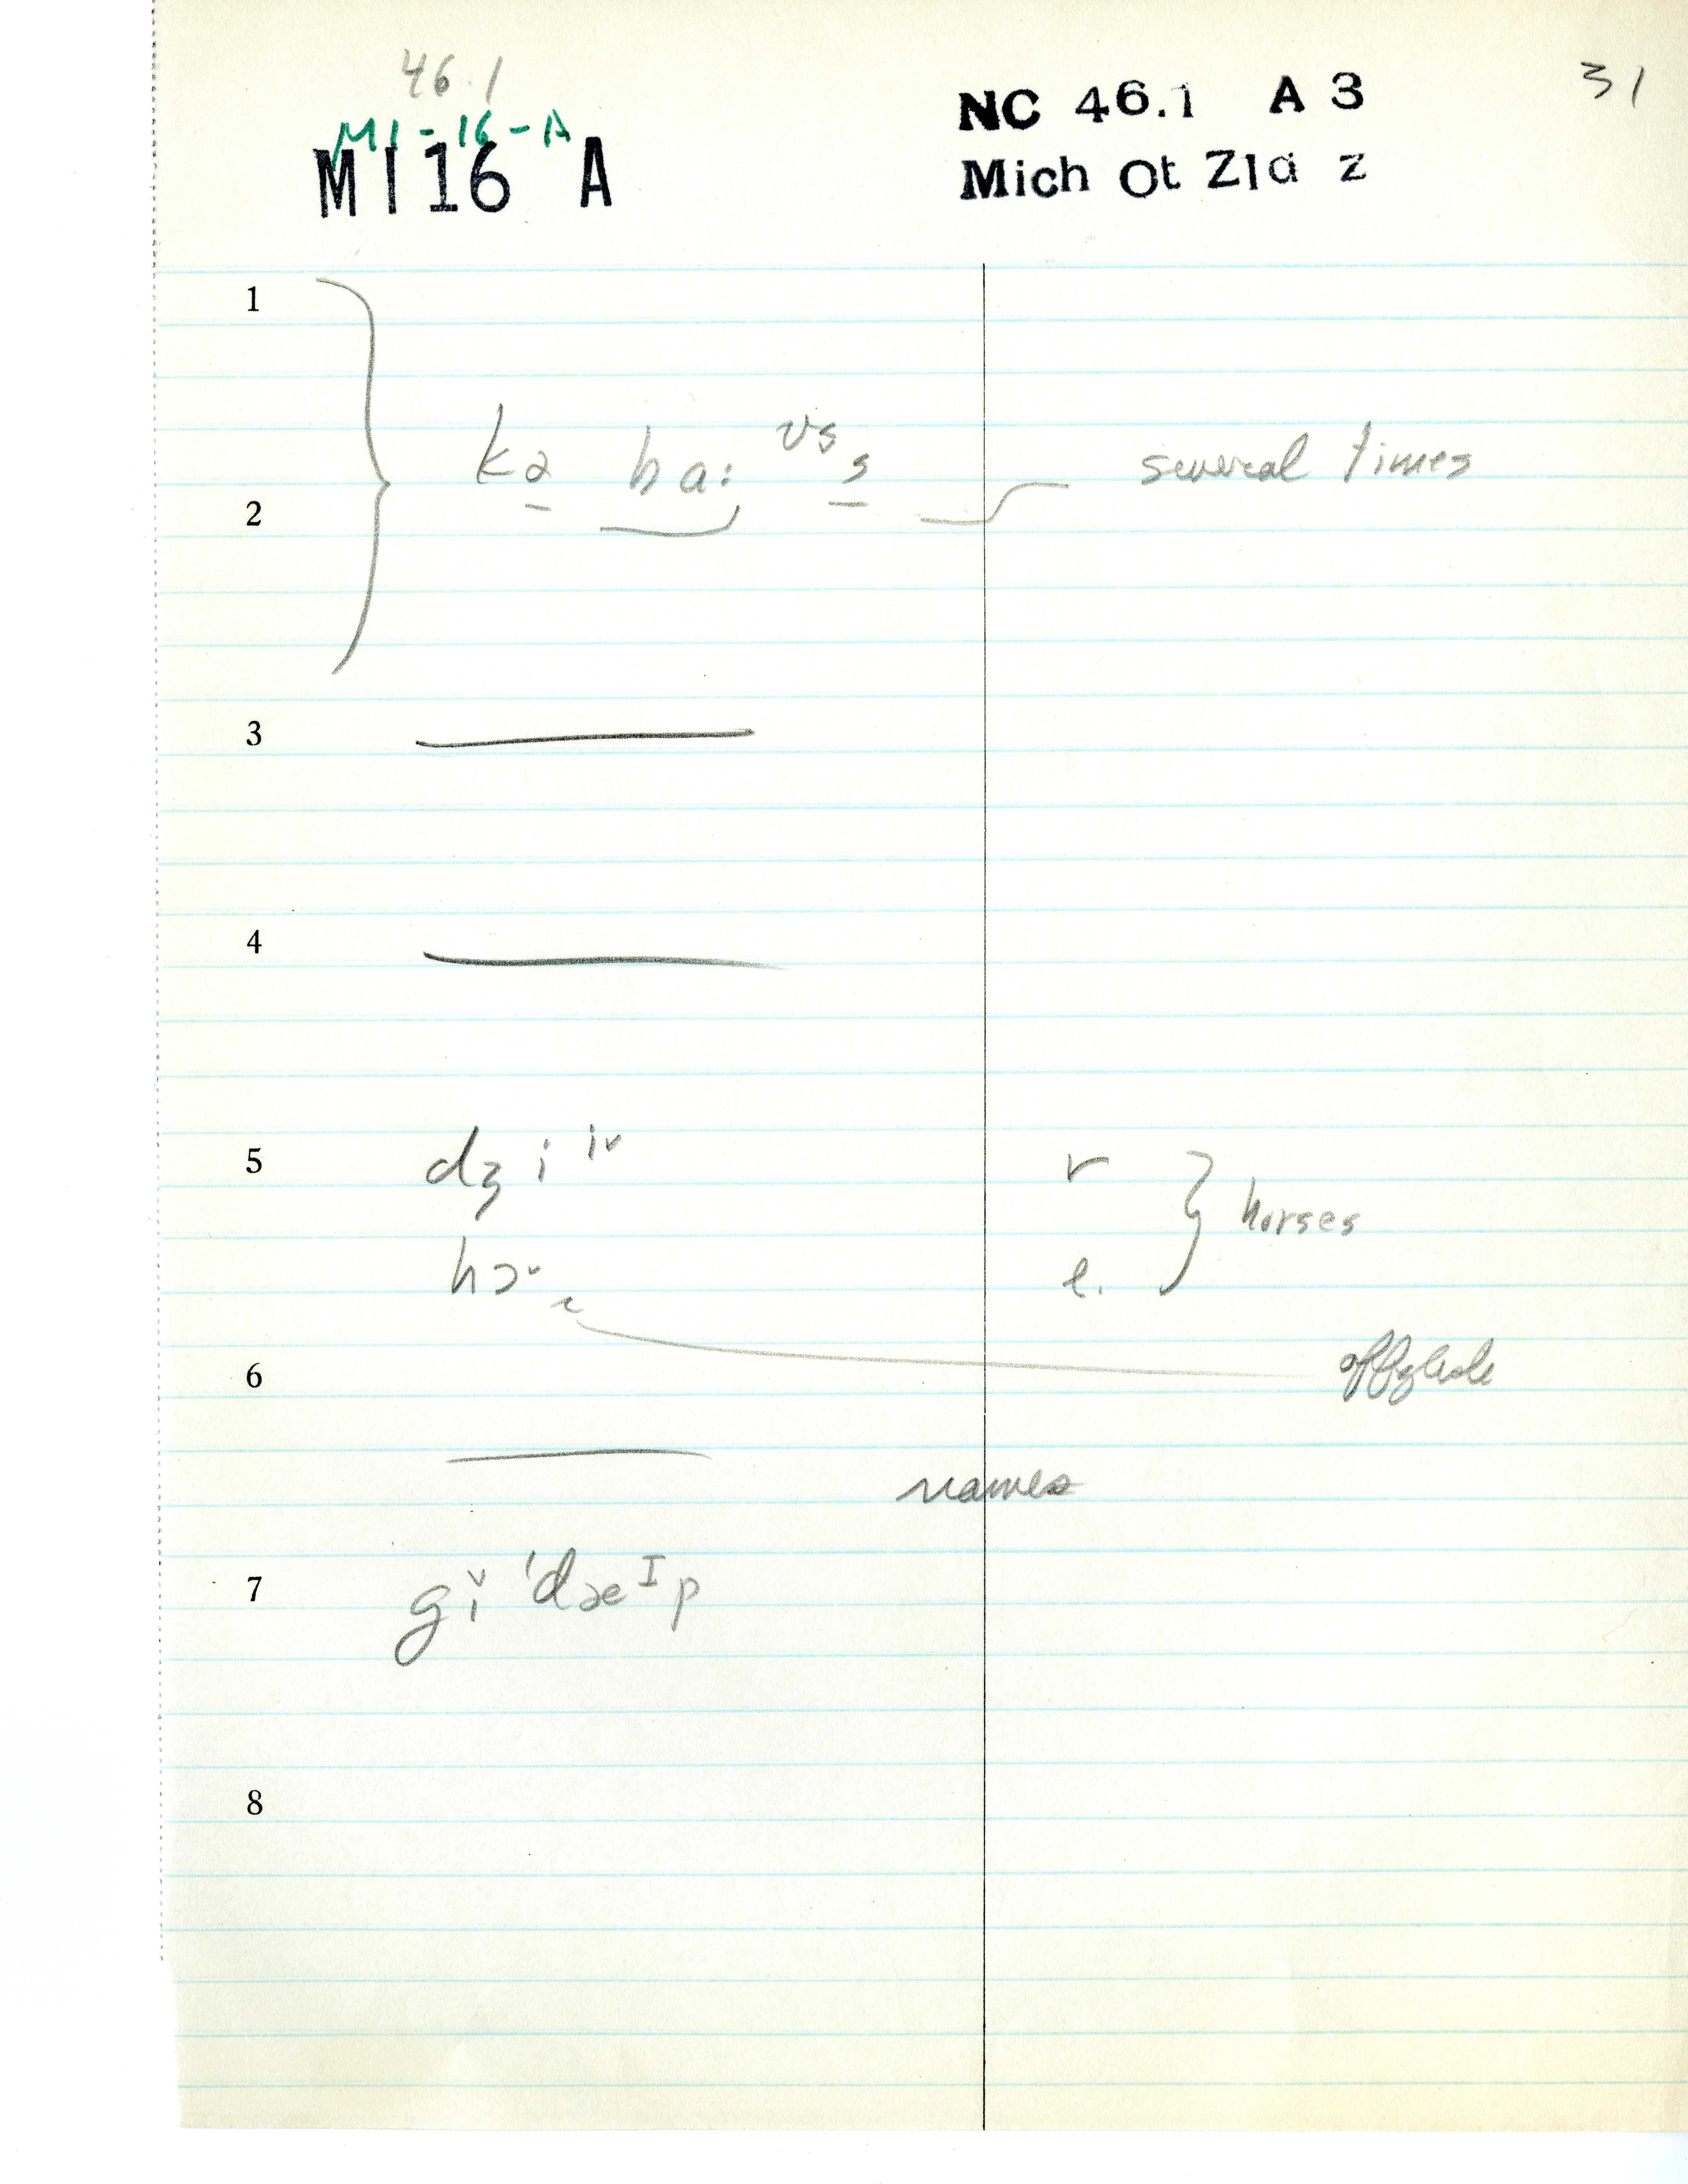 46.1
MI-16-A
MI 16 A
NC 46.1 A 3
Mich Ot Z1a z
31
1
kə ba: ᵛˢ s several times
2
3
4
5 dʒ i ⁱᵛ r } horses
hɔ˅ e.
6 offglide
names
7 gi˅ 'dæᴵp
8